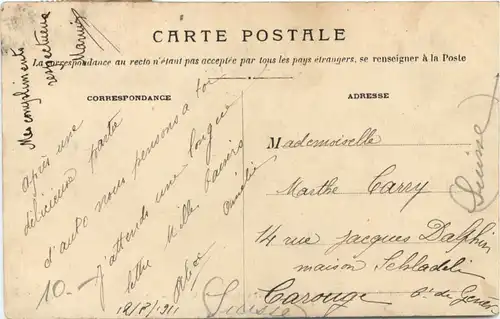 Mes compliments
respectueux
CARTE POSTALE
La correspondance au recto n'étant pas acceptée par tous les pays étrangers, se renseigner à la Poste
CORRESPONDANCE
après une
délicieuse partie
d'auto nous pensons à toi
J'attends une longue
lettre Mille baisers
Alice
10.-
12/8/1911
Suisse
ADRESSE
Mademoiselle
Marthe Carry
14 rue Jacques Dalphin
maison
Carouge
Suisse